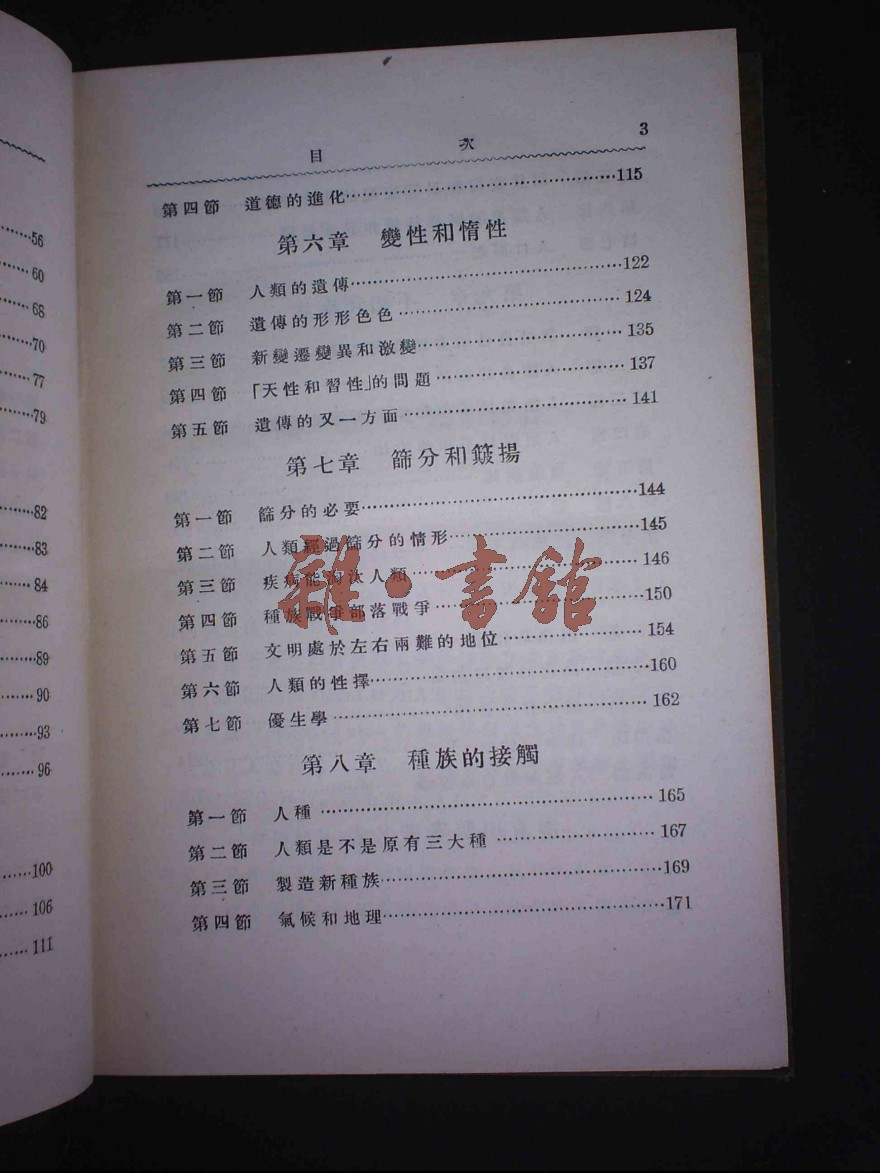 56
60
68
70
77
79
82
83
84
86
89
90
93
96
100
106
111
目 次 3
第四節 道德的進化……115
第六章 變性和惰性
第一節 人類的遺傳……122
第二節 遺傳的形形色色……124
第三節 新變遷變異和激變……135
第四節 「天性和習性」的問題……137
第五節 遺傳的又一方面……141
第七章 篩分和簸揚
第一節 篩分的必要……144
第二節 人類經過篩分的情形……145
第三節 疾病能淘汰人類……146
第四節 種族戰爭部落戰爭……150
第五節 文明處於左右兩難的地位……154
第六節 人類的性擇……160
第七節 優生學……162
第八章 種族的接觸
第一節 人種……165
第二節 人類是不是原有三大種……167
第三節 製造新種族……169
第四節 氣候和地理……171
雜·書館